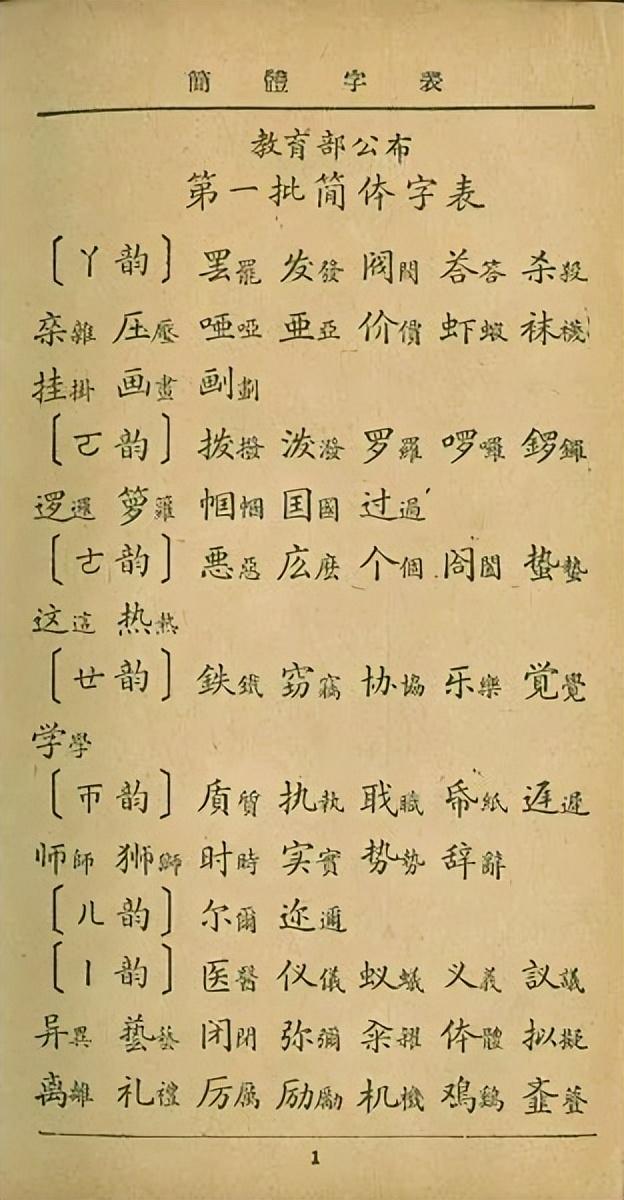 簡體字表
教育部公布
第一批简体字表
〔ㄚ韵〕 罢罷 发發 阀閥 荅答 杀殺
杂雜 压壓 哑啞 亜亞 价價 虾蝦 袜襪
挂掛 画畫 劃
〔ㄛ韵〕 拨撥 泼潑 罗羅 啰囉 鑼
逻邏 箩籮 帼幗 国國 过過
〔ㄜ韵〕 恶惡 庅麼 个個 阁閣 蛰蟄
这這 热熱
〔ㄝ韵〕 鉄鐵 窃竊 协協 乐樂 覚覺
学學
〔ㄭ韵〕 质質 执執 职職 帋紙 遅遲
师師 狮獅 时時 实實 势勢 辞辭
〔ㄦ韵〕 尔爾 迩邇
〔ㄧ韵〕 医醫 仪儀 蚁蟻 义義 議
异異 藝 闭閉 弥彌 籴糴 体體 拟擬
离離 礼禮 厉厲 励勵 机機 鸡鷄 齑
1